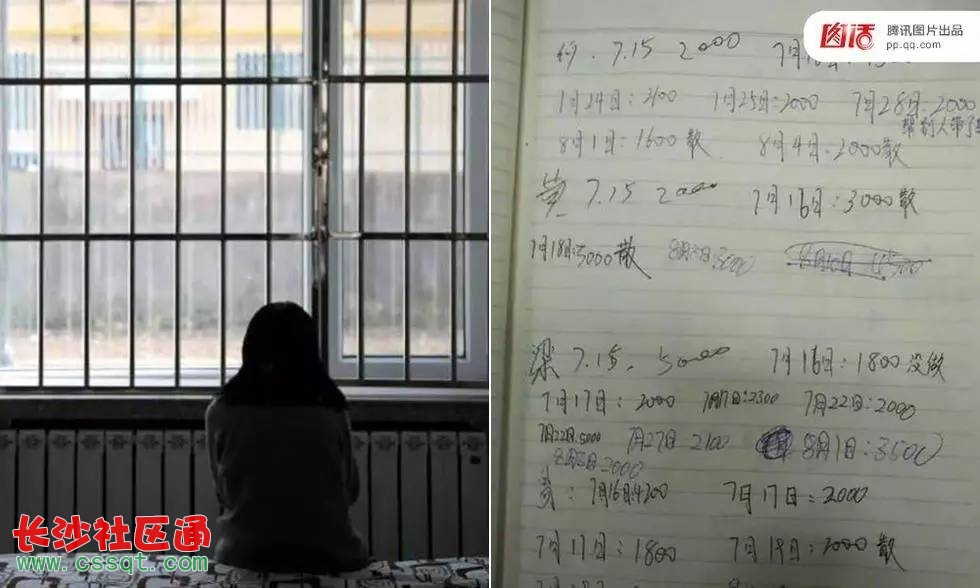 图话
腾讯图片出品
pp.qq.com
7.15 2000
1月24日：2100 1月25日：2000 7月28日：2000
8月1日：1600散 8月4日：2000散
黄 7.15 2000 7月16日：3000散
7月18日：5000散
梁 7.15. 5000 7月16日：1800没做
7月17日：2000 7月17日：2300 7月22日：2000
7月22日：5000 7月27日 2100 8月1日：3500
7月16日：4200 7月17日：2000
7月17日：1800 7月19日：2000散
长沙社区通
www.cssqt.com